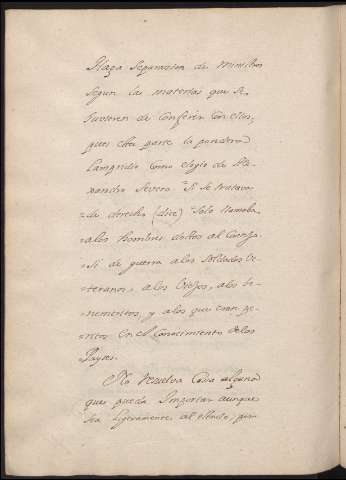 Haga separasion de Ministros
segun las materias que se
huvieren de conferir con ellos,
pues esta parte la pondera
Lampridio como elogio de Ale-
xandro Severo "Si se tratava
"de derecho (dize) "solo llamaba
"alos hombres doctos al Consejo
"Si de guerra alos soldados Ve-
"teranos, alos Viejos, alos be-
"nemeritos, y alos que eran pe-
"ritos en el Conocimiento delos
Payses.
No resuelva Cosa alguna
que pueda Importar aunque
sea ligeramente al estado, sin